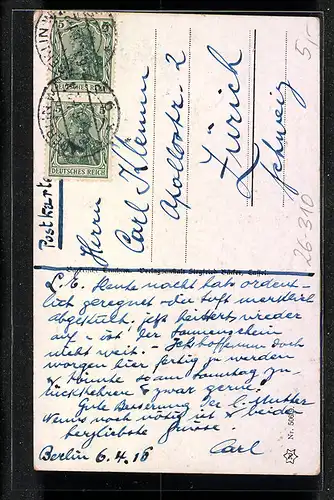 Postkarte
DEUTSCHES REICH
DEUTSCHES REICH
Herrn
Carl Klemm
Apollostr. 2
Zürich
Schweiz
5,-
26310
L. E. Heute nacht hats ordent-
lich geregnet die Luft merklich
abgekühlt, jetzt heitert's wieder
auf u. ist der Sonnenschein
nicht weit. – Ich hoffe nun doch
morgen hier fertig zu werden
u. könnte so am Sonntag zu-
rückkehren u. zwar gern!
Gute Besserung der l. Mutter
wenns noch nötig ist u. beiden
herzlichste Grüsse.
Carl
Berlin 6.4.16